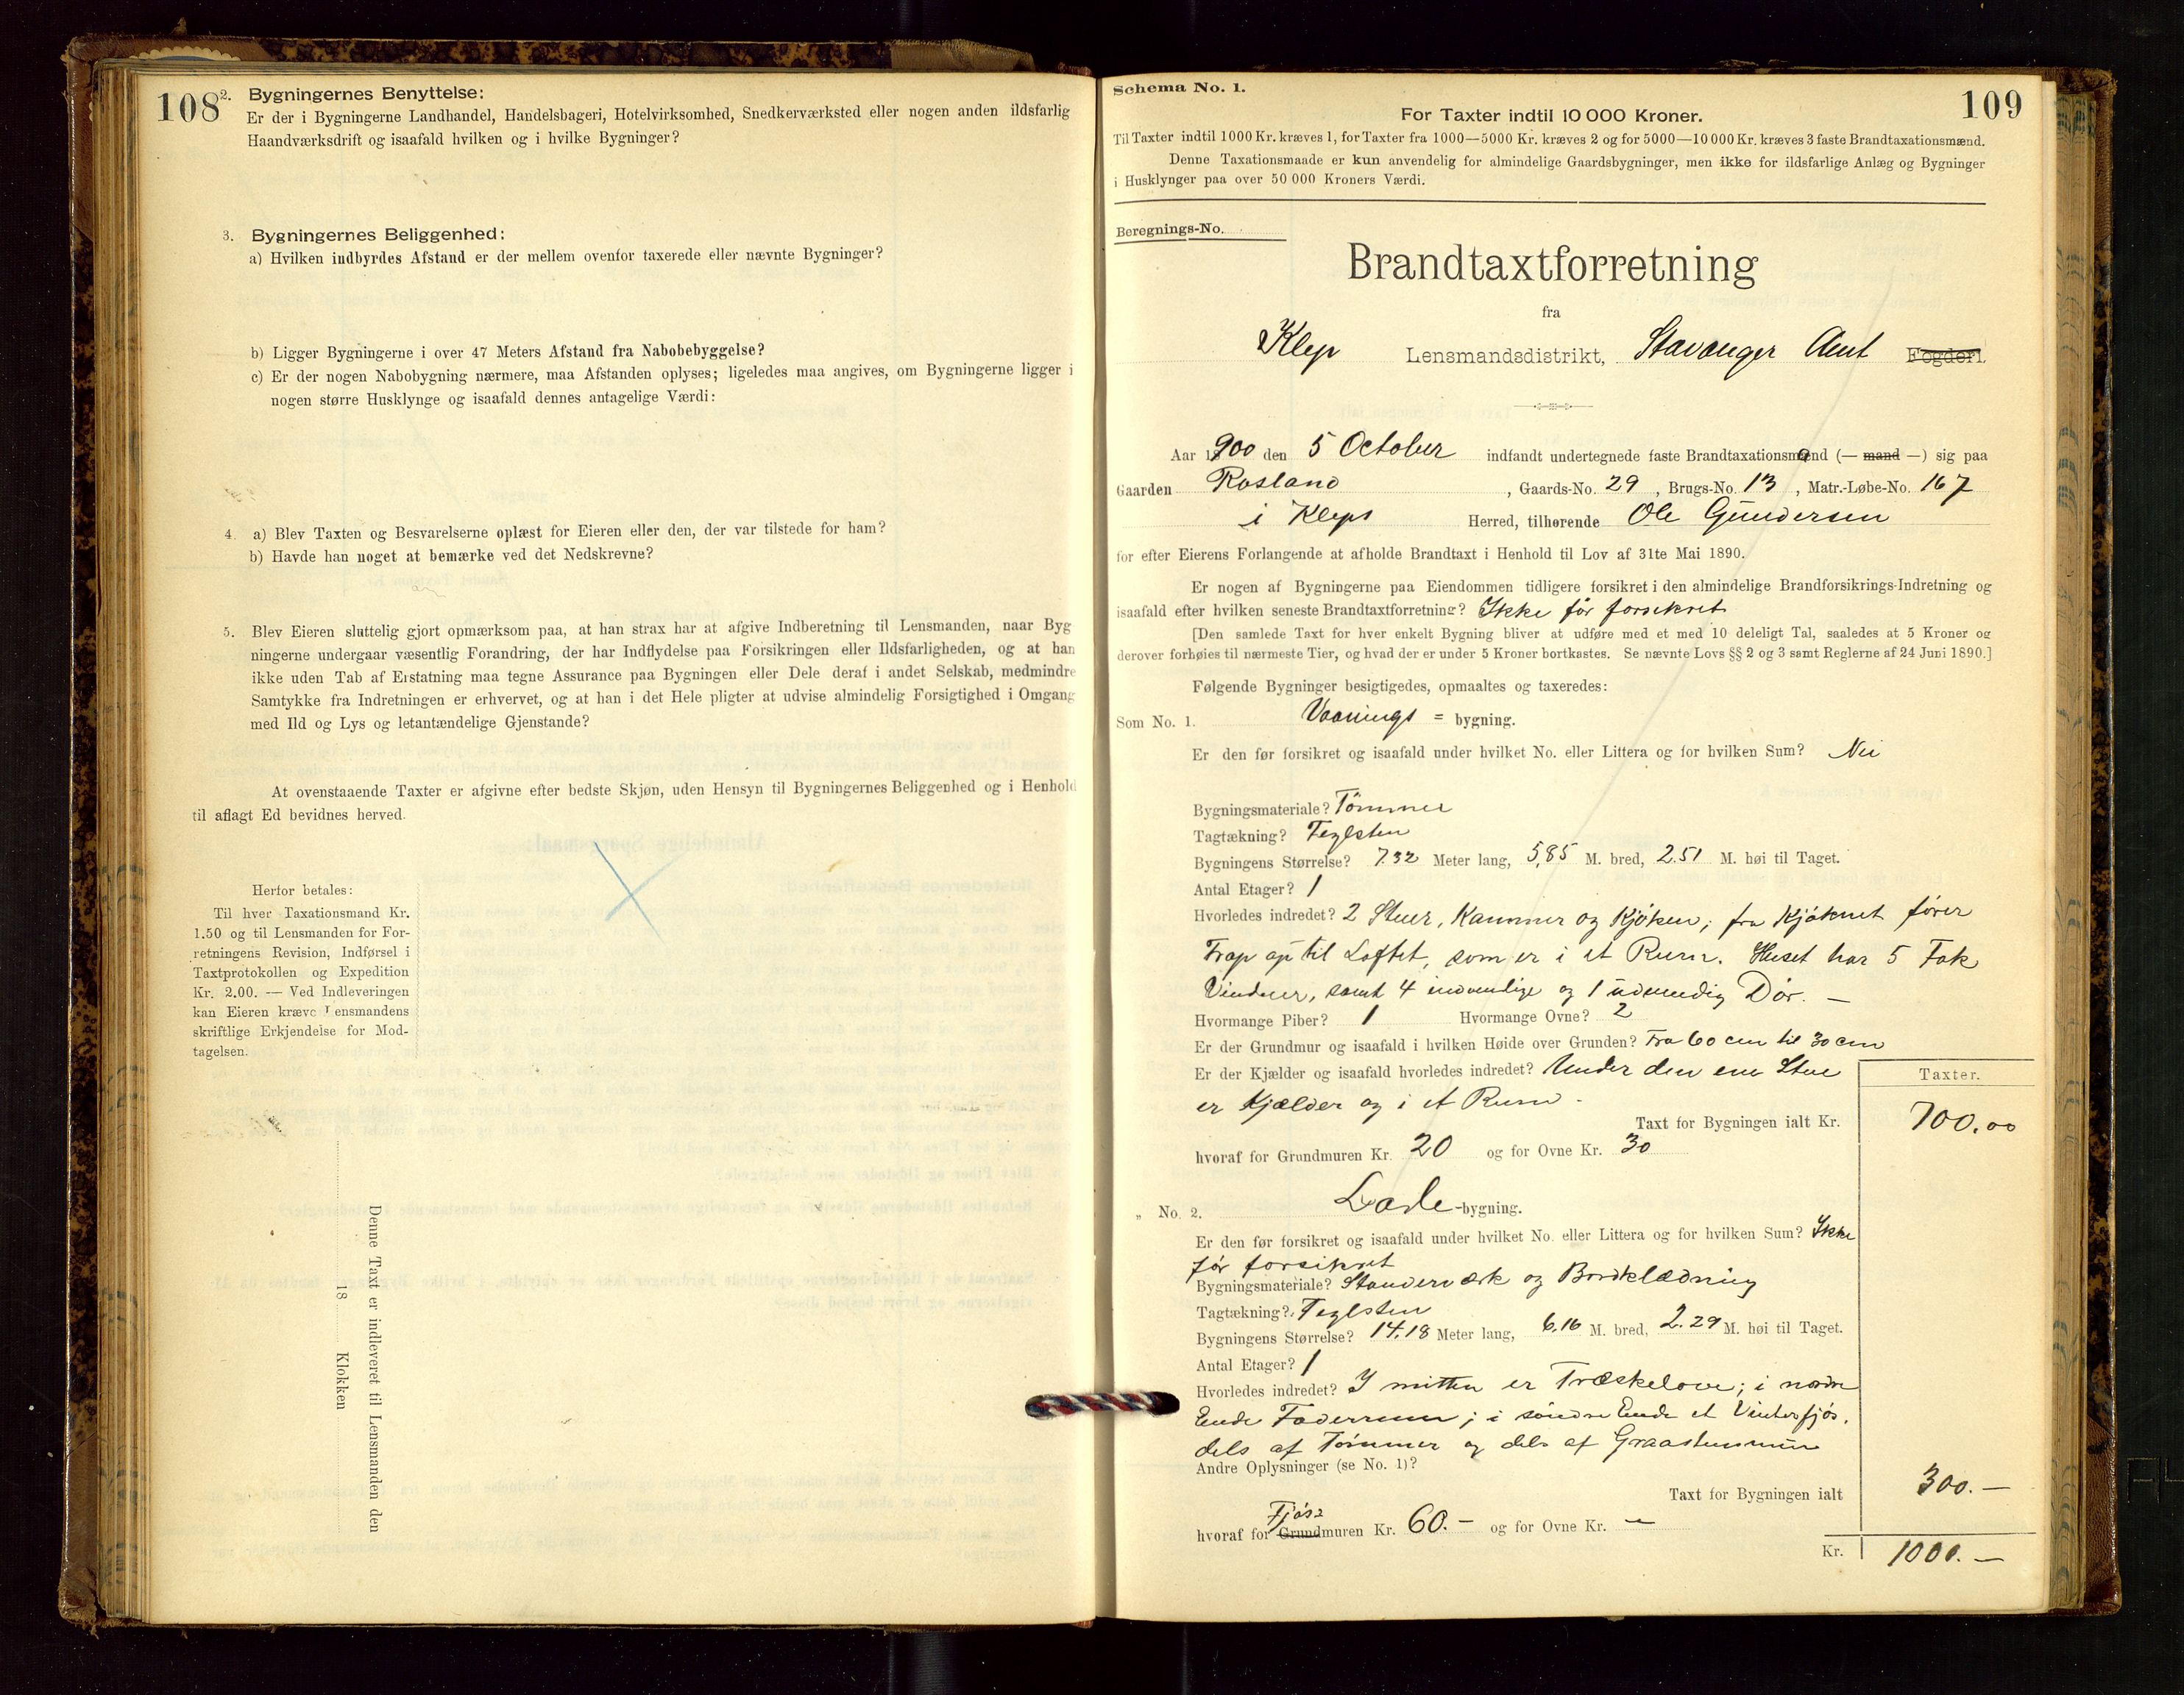 108
2. Bygningernes Benyttelse:
Er der i Bygningerne Landhandel, Handelsbageri, Hotelvirksomhed, Snedkerværksted eller nogen anden ildsfarlig
Haandværksdrift og isaafald hvilken og i hvilke Bygninger?
3. Bygningernes Beliggenhed:
a) Hvilken indbyrdes Afstand er der mellem ovenfor taxerede eller nævnte Bygninger?
b) Ligger Bygningerne i over 47 Meters Afstand fra Nabobebyggelse?
c) Er der nogen Nabobygning nærmere, maa Afstanden oplyses; ligeledes maa angives, om Bygningerne ligger i
nogen større Husklynge og isaafald dennes antagelige Værdi:
4. a) Blev Taxten og Besvarelserne oplæst for Eieren eller den, der var tilstede for ham?
b) Havde han noget at bemærke ved det Nedskrevne?
5. Blev Eieren sluttelig gjort opmærksom paa, at han strax har at afgive Indberetning til Lensmanden, naar Byg
ningerne undergaar væsentlig Forandring, der har Indflydelse paa Forsikringen eller Ildsfarligheden, og at han
ikke uden Tab af Erstatning maa tegne Assurance paa Bygningen eller Dele deraf i andet Selskab, medmindre
Samtykke fra Indretningen er erhvervet, og at han i det Hele pligter at udvise almindelig Forsigtighed i Omgang
med Ild og Lys og letantændelige Gjenstande?
At ovenstaaende Taxter er afgivne efter bedste Skjøn, uden Hensyn til Bygningernes Beliggenhed og i Henhold
til aflagt Ed bevidnes herved.
Herfor betales:
Til hver Taxationsmand Kr.
1.50 og til Lensmanden for For-
retningens Revision, Indførsel i
Taxtprotokollen og Expedition
Kr. 2.00. — Ved Indleveringen
kan Eieren kræve Lensmandens
skriftlige Erkjendelse for Mod-
tagelsen.
Denne Taxt er indleveret til Lensmanden den
18 Klokken
Schema No. 1.
109
For Taxter indtil 10 000 Kroner.
Til Taxter indtil 1000 Kr. kræves 1, for Taxter fra 1000—5000 Kr. kræves 2 og for 5000—10 000 Kr. kræves 3 faste Brandtaxationsmænd.
Denne Taxationsmaade er kun anvendelig for almindelige Gaardsbygninger, men ikke for ildsfarlige Anlæg og Bygninger
i Husklynger paa over 50 000 Kroners Værdi.
Beregnings-No.
Brandtaxtforretning
fra
Klep Lensmandsdistrikt, Stavanger Amt Fogderi.
Aar 1900 den 5 October indfandt undertegnede faste Brandtaxationsmænd (— mand —) sig paa
Gaarden Rosland, Gaards-No. 29, Brugs-No. 13, Matr.-Løbe-No. 167
i Klep Herred, tilhørende Ole Gundersen
for efter Eierens Forlangende at afholde Brandtaxt i Henhold til Lov af 31te Mai 1890.
Er nogen af Bygningerne paa Eiendommen tidligere forsikret i den almindelige Brandforsikrings-Indretning og
isaafald efter hvilken seneste Brandtaxtforretning? Ikke før forsikret
[Den samlede Taxt for hver enkelt Bygning bliver at udføre med et med 10 deleligt Tal, saaledes at 5 Kroner og
derover forhøies til nærmeste Tier, og hvad der er under 5 Kroner bortkastes. Se nævnte Lovs §§ 2 og 3 samt Reglerne af 24 Juni 1890.]
Følgende Bygninger besigtigedes, opmaaltes og taxeredes:
Som No. 1. Vaanings = bygning.
Er den før forsikret og isaafald under hvilket No. eller Littera og for hvilken Sum? Nei
Bygningsmateriale? Tømmer
Tagtækning? Teglsten
Bygningens Størrelse? 7.32 Meter lang, 5,85 M. bred, 2.51 M. høi til Taget.
Antal Etager? 1
Hvorledes indredet? 2 Stuer, Kammer og Kjøken; fra Kjøknet fører
Trap op til Loftet, som er i et Rum. Huset har 5 Fak
Vinduer, samt 4 indvendige og 1 udvendig Dør. —
Hvormange Piber? 1 Hvormange Ovne? 2
Er der Grundmur og isaafald i hvilken Høide over Grunden? Fra 60 cm til 30 cm
Er der Kjælder og isaafald hvorledes indredet? Under den ene Stue
er Kjælder og i et Rum -
Taxter.
Taxt for Bygningen ialt Kr. 700.00
hvoraf for Grundmuren Kr. 20 og for Ovne Kr. 30
„ No. 2. Lade-bygning.
Er den før forsikret og isaafald under hvilket No. eller Littera og for hvilken Sum? Ikke
før forsikret
Bygningsmateriale? Standerværk og Bordklædning
Tagtækning? Teglsten
Bygningens Størrelse? 14.18 Meter lang, 6.16 M. bred, 2.29 M. høi til Taget.
Antal Etager? 1
Hvorledes indredet? I mitten er Træskelove; i nordre
Ende Foderrum; i søndre Ende et Vinterfjøs,
dels af Tømmer og dels af Graastensmur
Andre Oplysninger (se No. 1)?
Taxt for Bygningen ialt 300. —
Fjøs
hvoraf for Grundmuren Kr. 60. — og for Ovne Kr. —
Kr. 1000. —